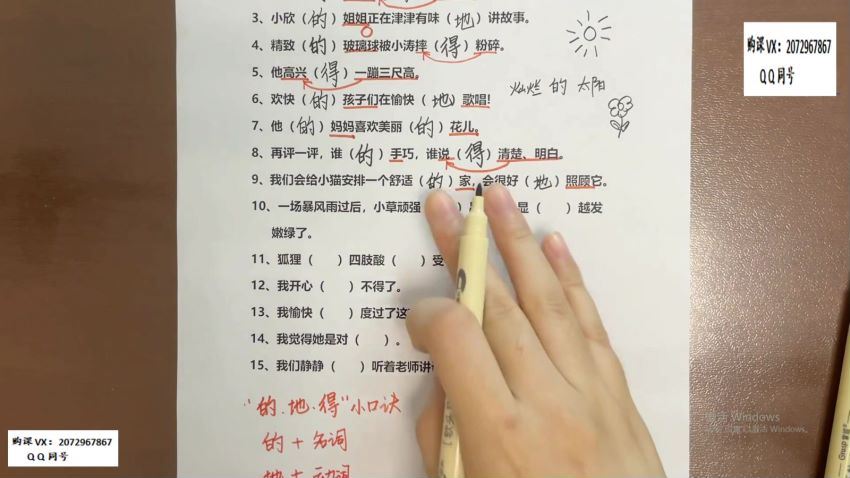 3、小欣（的）姐姐正在津津有味（地）讲故事。
4、精致（的）玻璃球被小涛摔（得）粉碎。
5、他高兴（得）一蹦三尺高。
6、欢快（的）孩子们在愉快（地）歌唱！
7、他（的）妈妈喜欢美丽（的）花儿。
8、再评一评，谁（的）手巧，谁说（得）清楚、明白。
9、我们会给小猫安排一个舒适（的）家，会很好（地）照顾它。
10、一场暴风雨过后，小草顽强 显（ ）越发
嫩绿了。
11、狐狸（ ）四肢酸（ ）受
12、我开心（ ）不得了。
13、我愉快（ ）度过了这
14、我觉得她是对（ ）。
15、我们静静（ ）听着老师讲
灿烂 的 太阳
"的、地、得"小口诀
的 + 名词
地 + 动词
购课 VX：2072967867
QQ同号
购课 VX：2072967867
QQ同号
Windows
Windows。